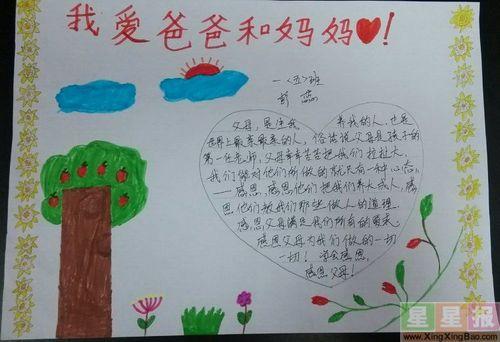 我爱爸爸和妈妈❤!
一<五>班
彭蕊
父母,是生我 养我的人,也是
世界上最亲最亲的人,俗话说父母是孩子的
第一任老师,父母辛辛苦苦把我们拉扯大,
我们能对他们所做的就只有一种心态,
——感恩,感恩他们把我们养大成人,感
恩他们教我们那些做人的道理,
感恩父母满足我们所有的要求,
感恩父母为我们做的一切
一切!学会感恩,
感恩父母!
星星报
www.XingXingBao.com